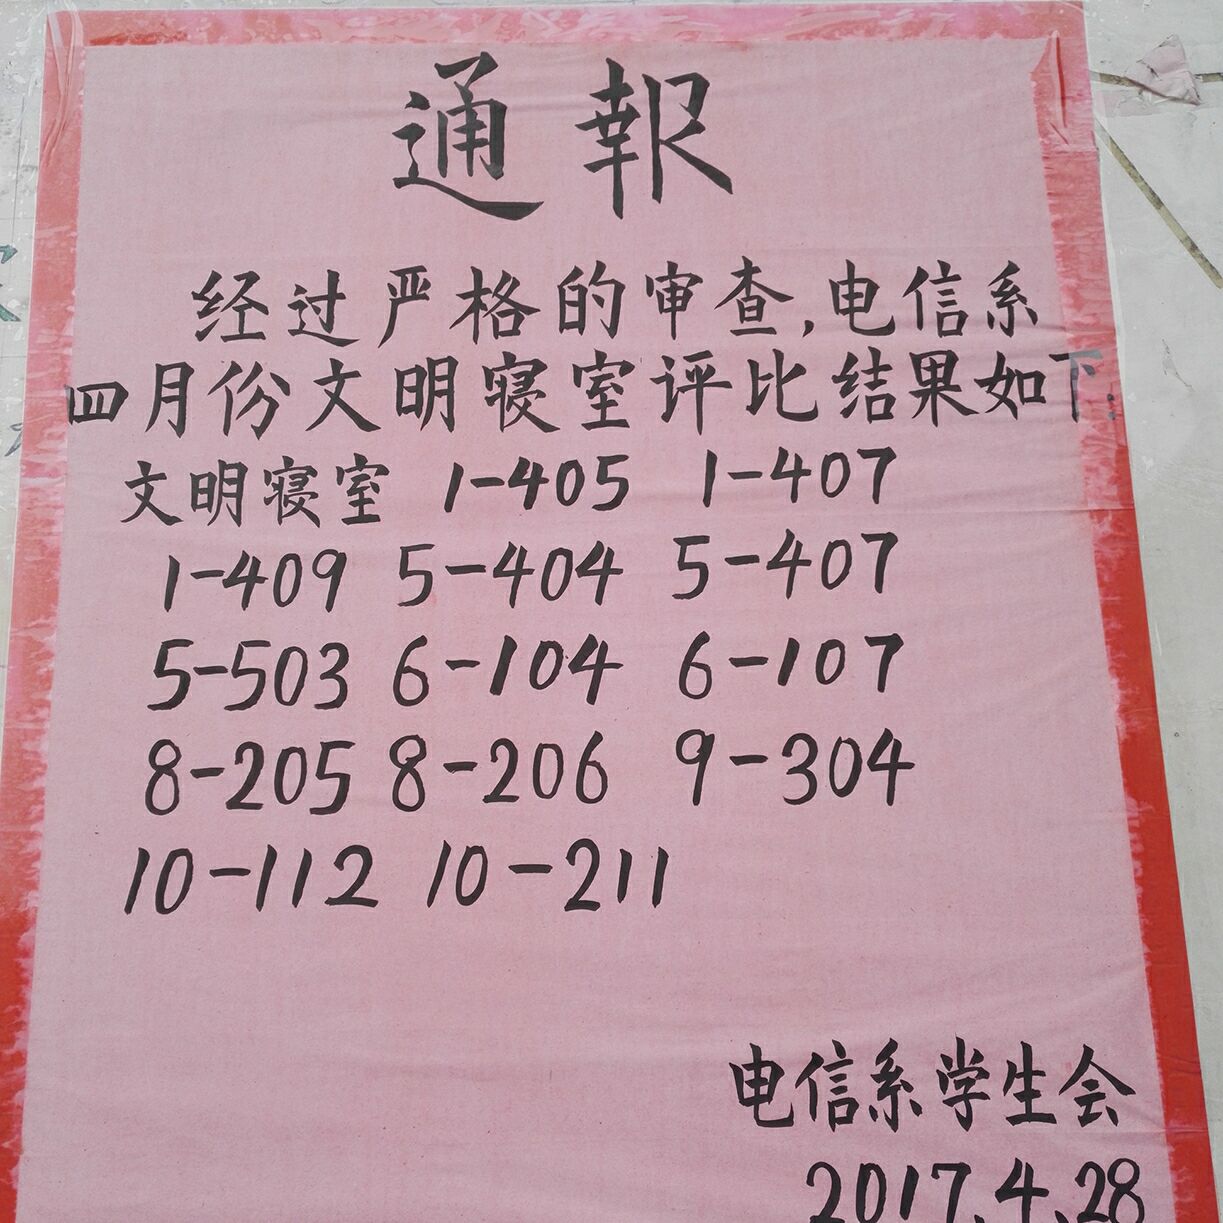 通報
经过严格的审查,电信系
四月份文明寝室评比结果如下:
文明寝室 1-405 1-407
1-409 5-404 5-407
5-503 6-104 6-107
8-205 8-206 9-304
10-112 10-211
电信系学生会
2017.4.28